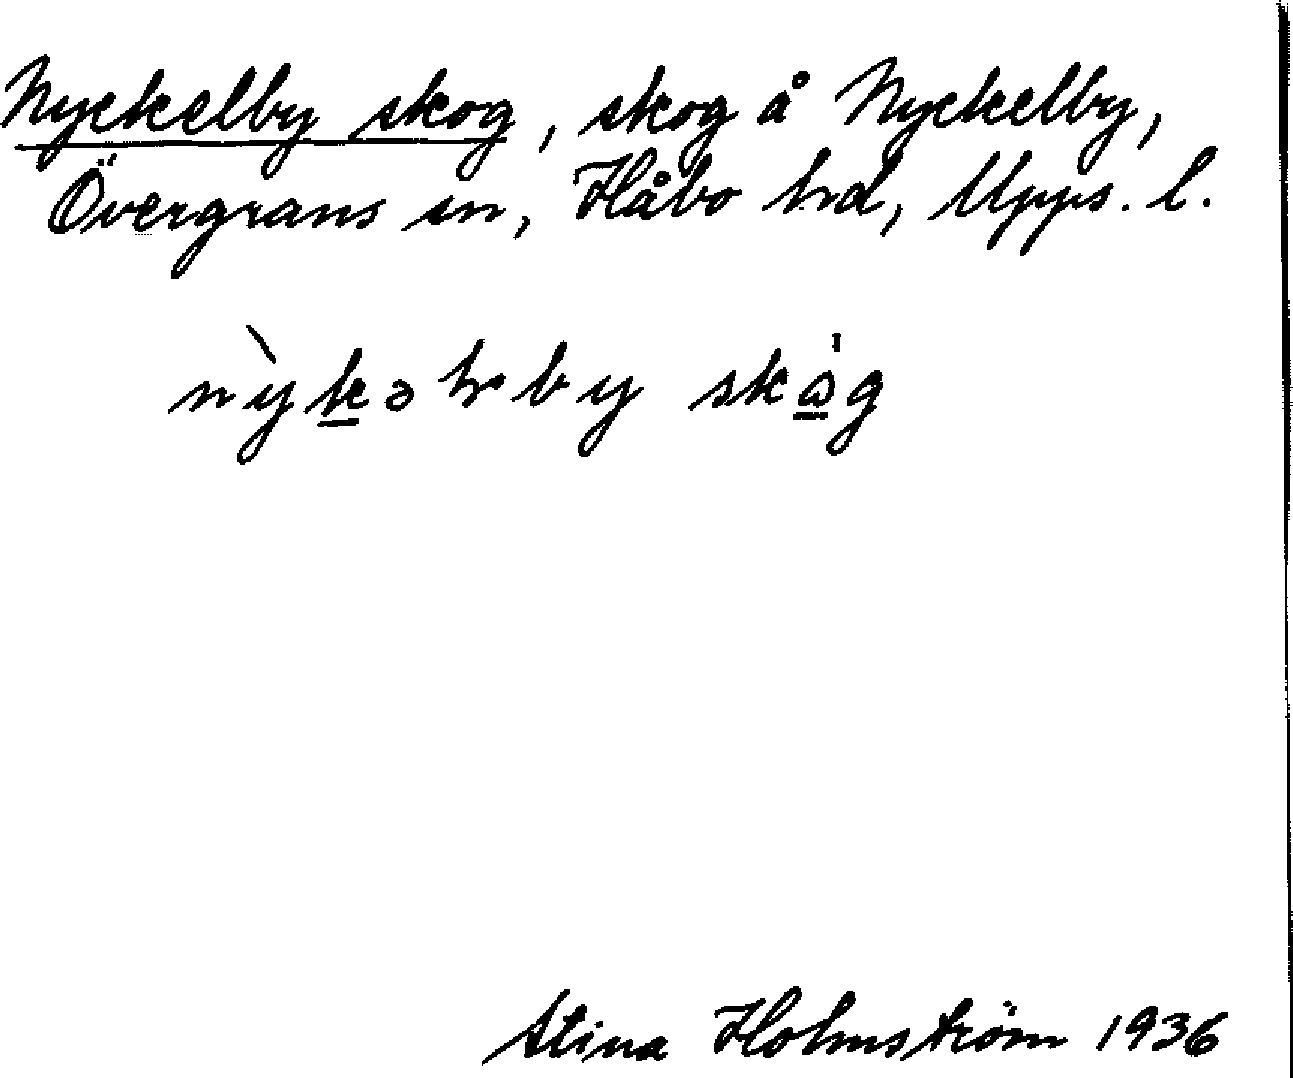 Nyckelby skog, skog å Nyckelby,
Övergrans sn, Håbo hd, Upps. l.
skog
Stina Holmström 1936